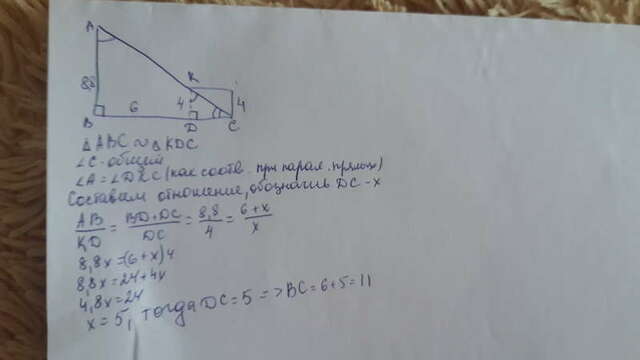 A
88
K
4
4
B
6
D
C
△ABC ∾ △KDC
∠C-общий
∠A=∠DKC (как соотв. при парал. прямых)
Составим отношение, обозначив DC-x
AB/KD = BD+DC/DC = 8,8/4 = 6+x/x
8,8x=(6+x)4
8,8x=24+4x
4,8x=24
x=5, тогда DC=5 => BC=6+5=11